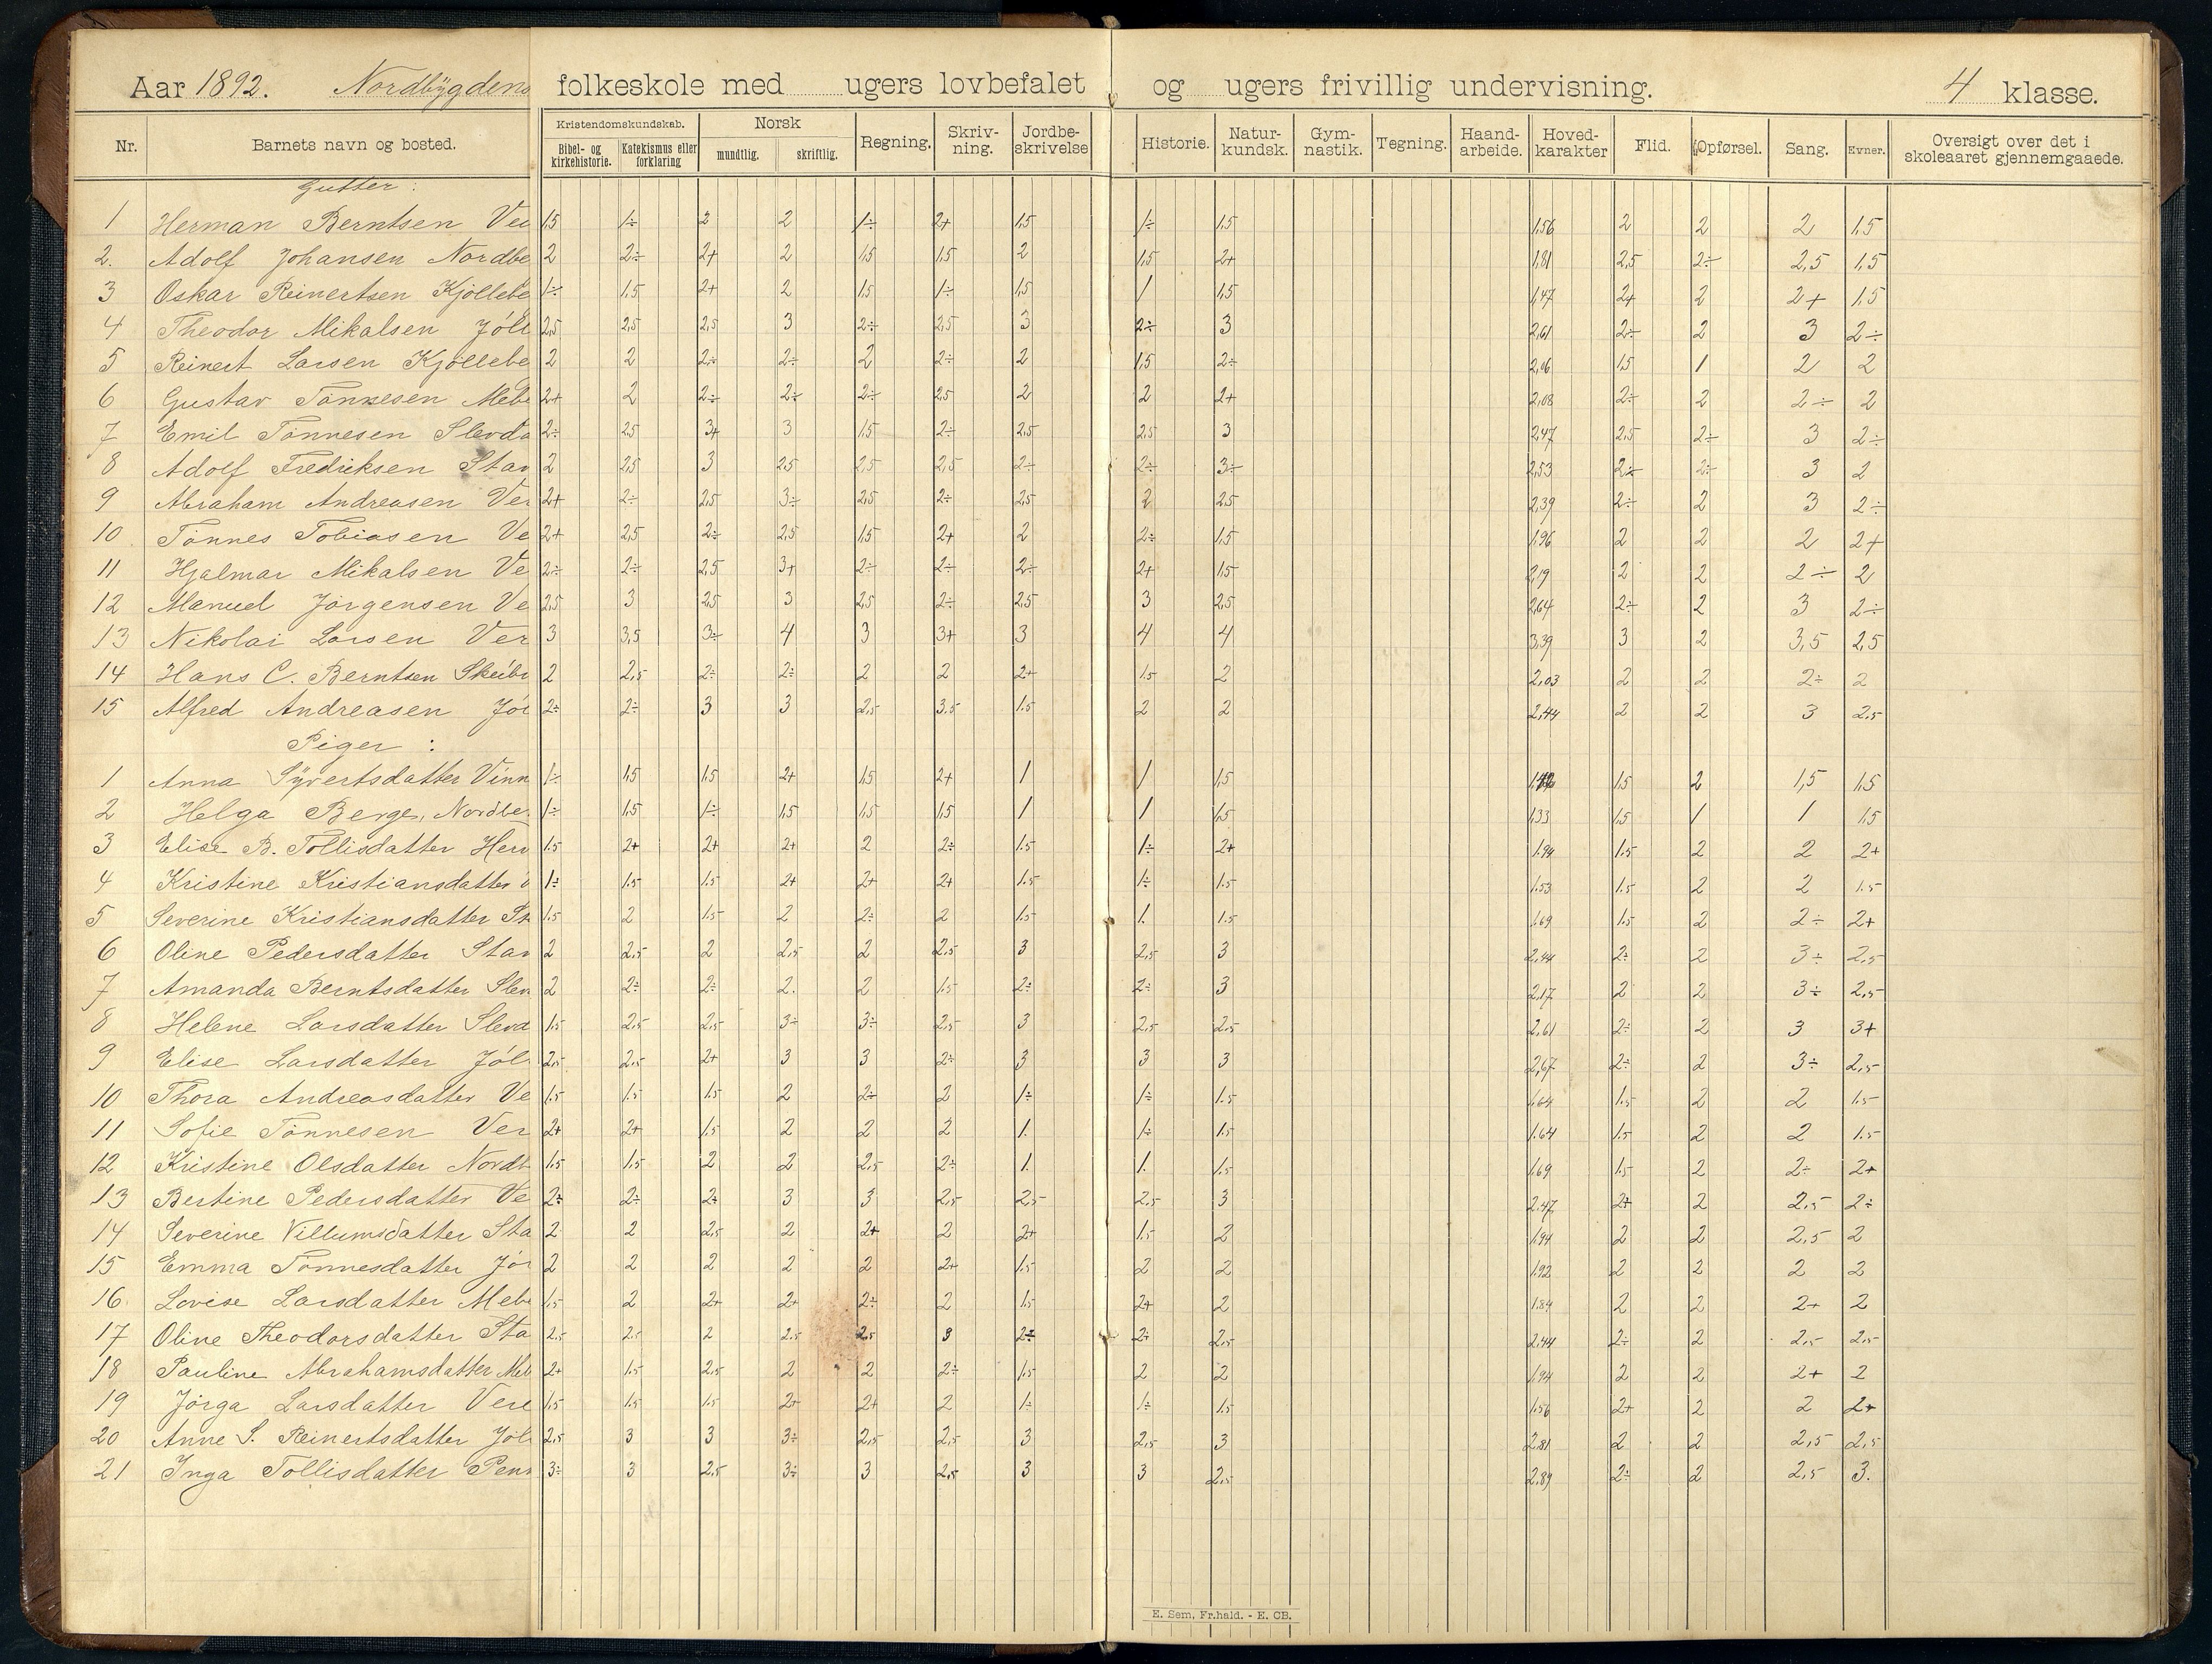 Aar 1892. Nordbygdens folkeskole med ugers lovbefalet og ugers frivillig undervisning. 4 klasse.
Nr. Barnets navn og bosted. Kristendomskundskab. Bibel- og kirkehistorie. Katekismus eller forklaring Norsk mundtlig. skriftlig. Regning. Skriv-ning. Jordbe-skrivelse Historie. Natur-kundsk. Gym-nastik. Tegning. Haand-arbeide. Hoved-karakter Flid. Opførsel. Sang. Evner. Oversigt over det i skoleaaret gjennemgaaede.
Gutter:
1 Herman Berntsen Ver 1,5 1÷ 2 2 1÷ 2+ 1,5 1÷ 1,5 1,56 2 2 2 1,5
2. Adolf Johansen Nordbe 2 2÷ 2+ 2 1,5 1,5 2 1,5 2+ 1,81 2,5 2÷ 2,5 1,5
3 Oskar Reinertsen Kjøllebe 1÷ 1,5 2+ 2 1,5 1÷ 1,5 1 1,5 1,47 2+ 2 2+ 1,5
4 Theodor Mikalsen Jøll 2,5 2,5 2,5 3 2÷ 2,5 3 2÷ 3 2,61 2÷ 2 3 2÷
5 Reinert Larsen Kjøllebe 2 2 2÷ 2÷ 2 2÷ 2 1,5 2÷ 2,06 1,5 1 2 2
6 Gustav Tønnesen Mebe 2+ 2 2÷ 2÷ 2÷ 2,5 2 2 2+ 2,08 2÷ 2 2÷ 2
7 Emil Tønnesen Slevda 2÷ 2,5 3+ 3 1,5 2÷ 2,5 2,5 3 2,47 2,5 2÷ 3 2÷
8 Adolf Fredriksen Stav 2 2,5 3 2,5 2,5 2,5 2÷ 2÷ 3÷ 2,53 2÷ 2÷ 3 2
9 Abraham Andreasen Ver 2+ 2÷ 2,5 3÷ 2,5 2÷ 2,5 2 2,5 2,39 2÷ 2 3 2÷
10 Tønnes Tobiasen Ve 2+ 2,5 2÷ 2,5 1,5 2+ 2 2÷ 1,5 1,96 2 2 2 2+
11 Hjalmar Mikalsen Ve 2÷ 2÷ 2,5 3+ 2÷ 2÷ 2÷ 2+ 1,5 2,19 2 2 2÷ 2
12 Manuel Jørgensen Ve 2,5 3 2,5 3 2,5 2÷ 2,5 3 2,5 2,64 2÷ 2 3 2÷
13 Nikolai Larsen Ver 3 3,5 3÷ 4 3 3+ 3 4 4 3,39 3 2 3,5 2,5
14 Hans C. Berntsen Skeibr 2 2,5 2÷ 2÷ 2 2 2+ 1.5 2 2,03 2 2 2÷ 2
15 Alfred Andreasen Jør 2÷ 2÷ 3 3 2,5 3.5 1.5 2 2 2,44 2 2 3 2.5
Piger:
1 Anna Syvertsdatter Vinn 1÷ 1,5 1,5 2+ 1,5 2+ 1 1 1,5 1,5 2 1,5 1,5
2 Helga Berge, Nordbe 1÷ 1,5 1÷ 1,5 1,5 1,5 1 1 1,5 1,33 1,5 1 1 1,5
3 Elise B. Tollisdatter Herv 1.5 2+ 2+ 2+ 2 2÷ 1.5 1÷ 2+ 1.94 1.5 2 2 2+
4 Kristine Kristiansdatter 1÷ 1.5 1.5 2+ 2+ 2+ 1.5 1÷ 1.5 1.53 1.5 2 2 1.5
5 Severine Kristiansdatter St 1.5 2 1.5 2 2÷ 2 1.5 1. 1.5 1.69 1.5 2 2÷ 2+
6 Oline Pedersdatter Stav 2 2.5 2 2,5 2 2,5 3 2,5 3 2,44 2÷ 2 3÷ 2.5
7 Amanda Berntsdatter Slev 2 2÷ 2÷ 2. 2 1.5 2÷ 2÷ 3 2,17 2 2 3÷ 2,5
8 Helene Larsdatter Slevd 1.5 2.5 2,5 3÷ 3÷ 2,5 3 2,5 2.5 2,61 2÷ 2 3 3+
9 Elise Larsdatter Jøl 2,5 2,5 2+ 3 3 2÷ 3 3 3 2,67 2÷ 2 3÷ 2,5
10 Thora Andreasdatter Ve 1.5 1.5 1.5 2 2÷ 2 1÷ 1÷ 1.5 1.64 1.5 2 2 1.5
11 Sofie Tønnesen Ver 2+ 2+ 1.5 2 2 2 1. 1÷ 1.5 1.64 1.5 2 2 1.5
12 Kristine Olsdatter Nordb 1.5 1.5 2 2 2,5 2÷ 1. 1. 1.5 1.69 1.5 2 2÷ 2+
13 Bertine Pedersdatter Ve 2÷ 2÷ 2÷ 3 3 2,5 2,5 2,5 3 2.47 2÷ 2 2.5 2÷
14 Severine Villumsdatter Sta 2 2 2,5 2 2+ 2 2+ 1.5 2 1.94 2 2 2,5 2
15 Emma Tønnesdatter Jør 2 2 2 2 2 2+ 1.5 2 2 1.92 2 2 2 2
16. Lovise Larsdatter Mebe 1.5 2 2+ 2+ 2÷ 2 1.5 2+ 2 1.84 2 2 2+ 2
17 Oline Theodorsdatter Sta 2.5 2.5 2 2.5 2,5 3 2÷ 2÷ 2,5 2.44 2÷ 2 2.5 2.5
18 Pauline Abrahamsdatter Meb 2+ 1.5 2,5 2 2 2÷ 1.5 2 2 1.94 2 2 2+ 2
19 Jørga Larsdatter Vere 1.5 1.5 1.5 2+ 2+ 2 1÷ 1÷ 1.5 1.56 2+ 2 2 2+
20 Anne S. Reinertsdatter Jøl 2,5 3 3 3÷ 2,5 2,5 3 2,5 3 2.81 2 2 2,5 2,5
21 Inga Tollisdatter Penn 3÷ 3 2,5 3÷ 3 2,5 3 3 2,5 2.89 2÷ 2 2,5 3.
E. Sem, Fr.hald. - E. CB.